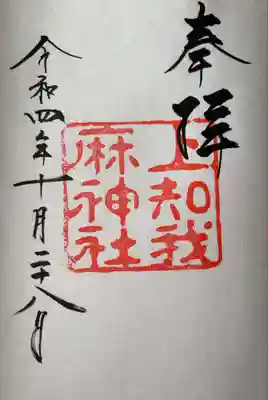 奉拝
上知我
麻神社
令和四年十月二十八日